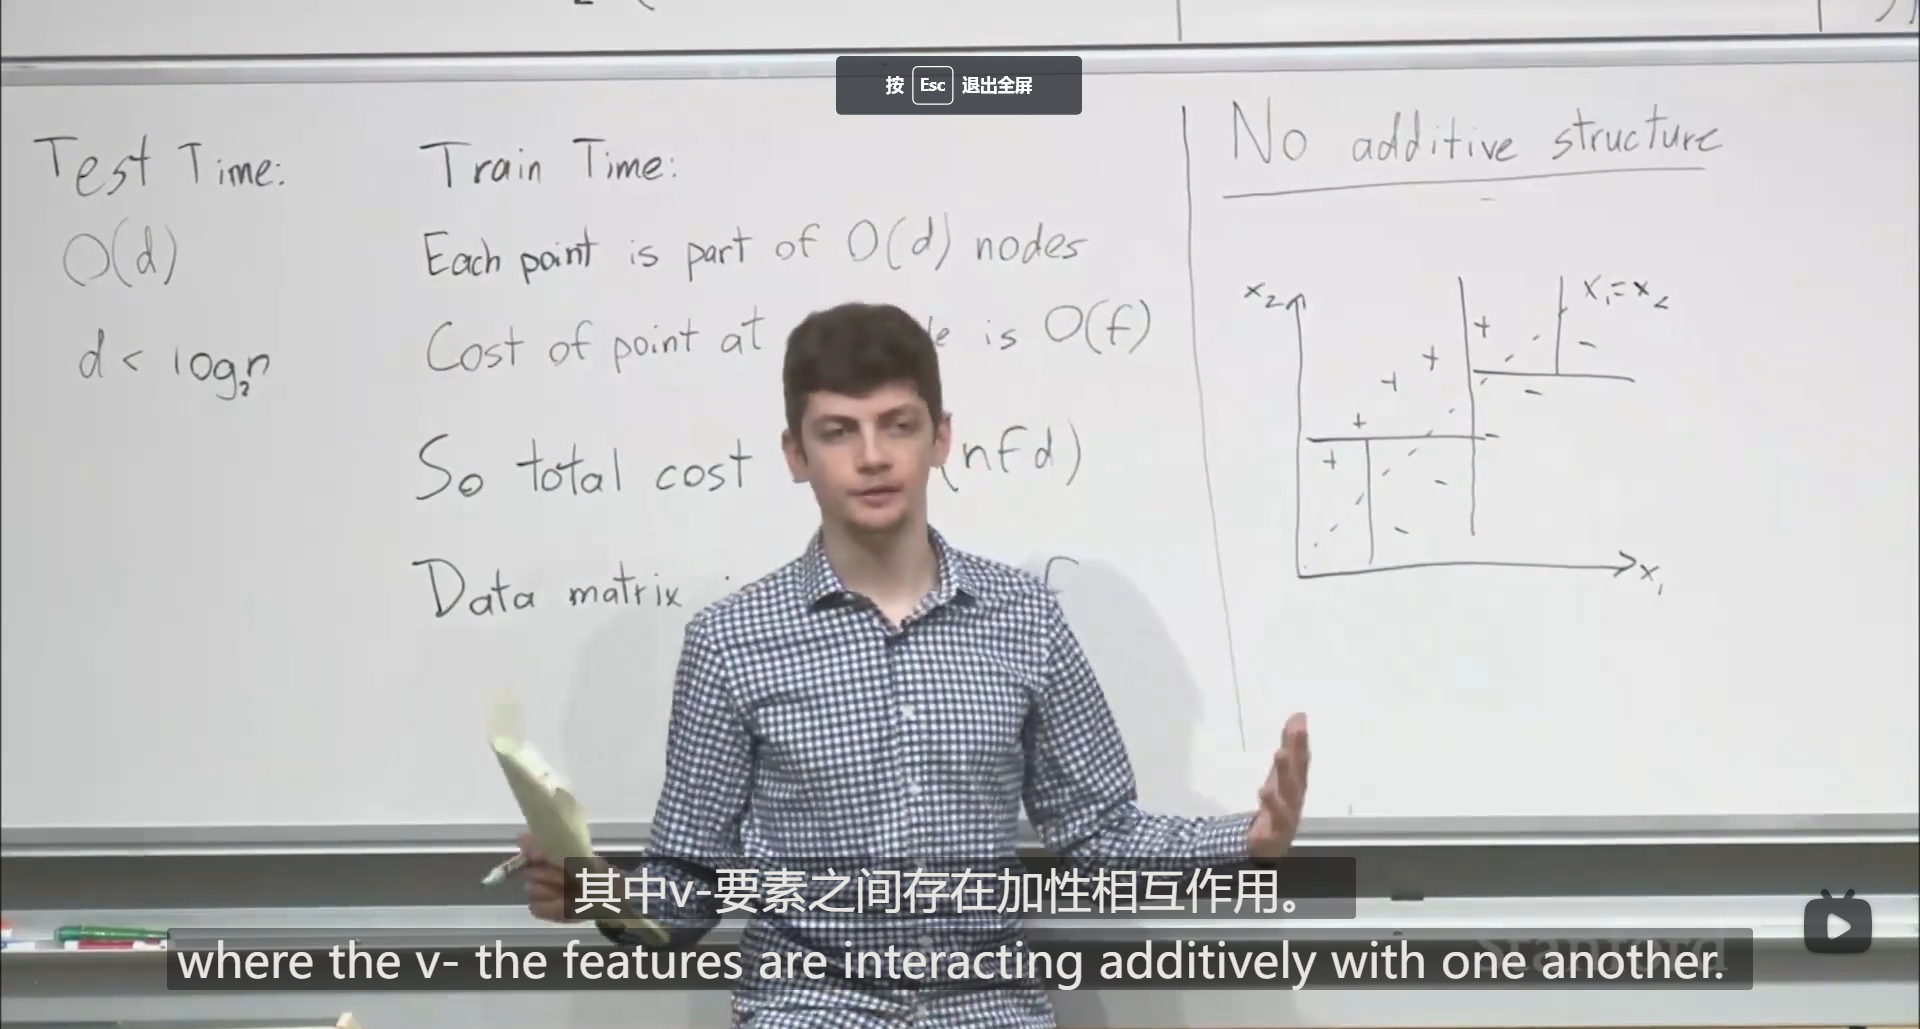 按 Esc 退出全屏
Test Time:
O(d)
d < log₂n
Train Time:
Each point is part of O(d) nodes
Cost of point at is O(f)
So total cost (nfd)
Data matrix
No additive structure
x₂
x₁=x₂
x₁
其中v-要素之间存在加性相互作用。
Stanford
where the v- the features are interacting additively with one another.